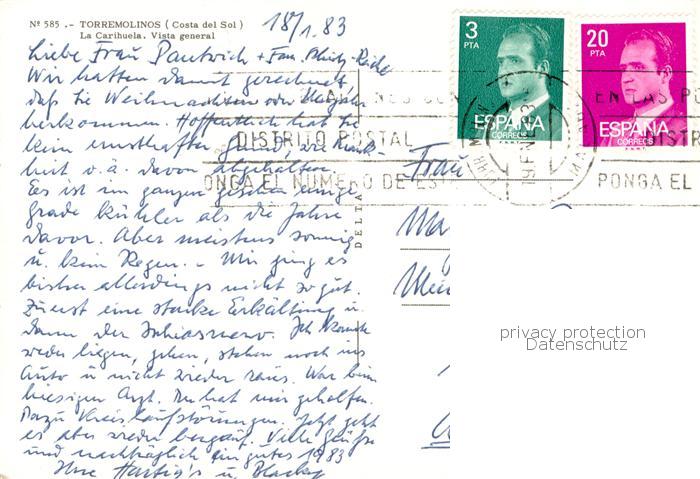 Nº 585 .- TORREMOLINOS ( Costa del Sol )
La Carihuela. Vista general
18/1.83
Liebe Frau
Wir hatten damit gerechnet
daß Sie Weihnachten oder Neujahr
herkommen. Hoffentlich hat Sie
kein ernsthafter Grund, wie Krank-
heit o.ä. davon abgehalten.
Es ist im ganzen gesehen einige
Grade kühler als die Jahre
davor. Aber meistens sonnig
u. kein Regen. - Mir ging es
bisher allerdings nicht so gut.
Zuerst eine starke Erkältung u.
dann der Ischiasnerv. Ich konnte
weder liegen, gehen, stehen noch ins
Auto u nicht wieder raus. War beim
hiesigen Arzt. Der hat mir geholfen.
Dazu Kreislaufstörungen. Jetzt geht
es aber wieder bergauf. Viele Grüße
und nachträglich ein gutes 1983
Ihre u. Blacky
DELTA
3
PTA
ESPAÑA
CORREOS
20
PTA
ESPAÑA
CORREOS
EN LAS
DISTRITO POSTAL
PONGA EL NUMERO DE
PONGA EL
Frau
privacy protection
Datenschutz